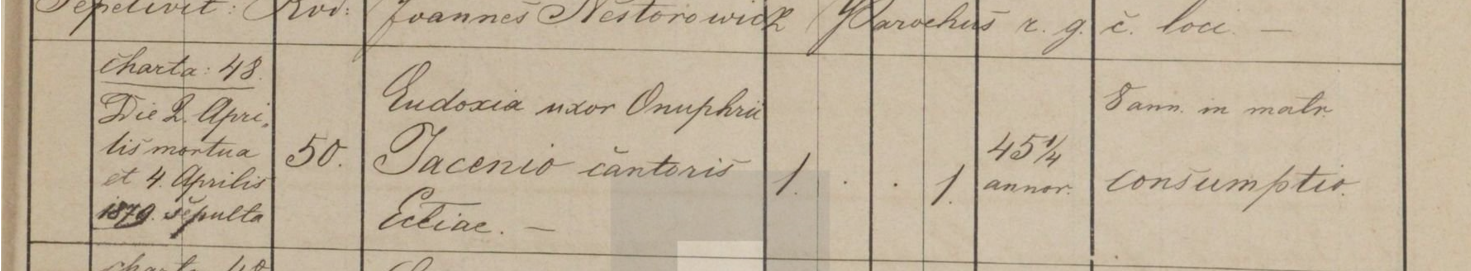 Sepelivit: Rvd: Joannes Nestorowicz Parochus r. g. c. loci. —
charta: 48.
Die 2. Apri-
lis mortua
et 4. Aprilis
1879. sepulta
50.
Eudoxia uxor Onuphrii
Jacenio cantoris
Eccliae. —
1. . . 1.
45 1/4
annor.
8 ann. in matr.
consumptio.